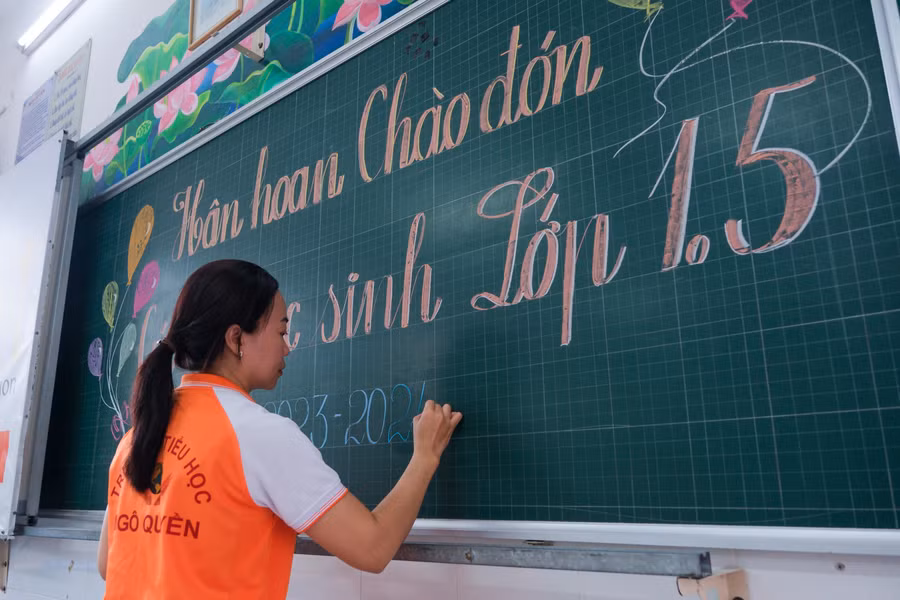 Hân hoan Chào đón
sinh Lớp 1.5
2023-2024
TIỂU HỌC
NGÔ QUYỀN